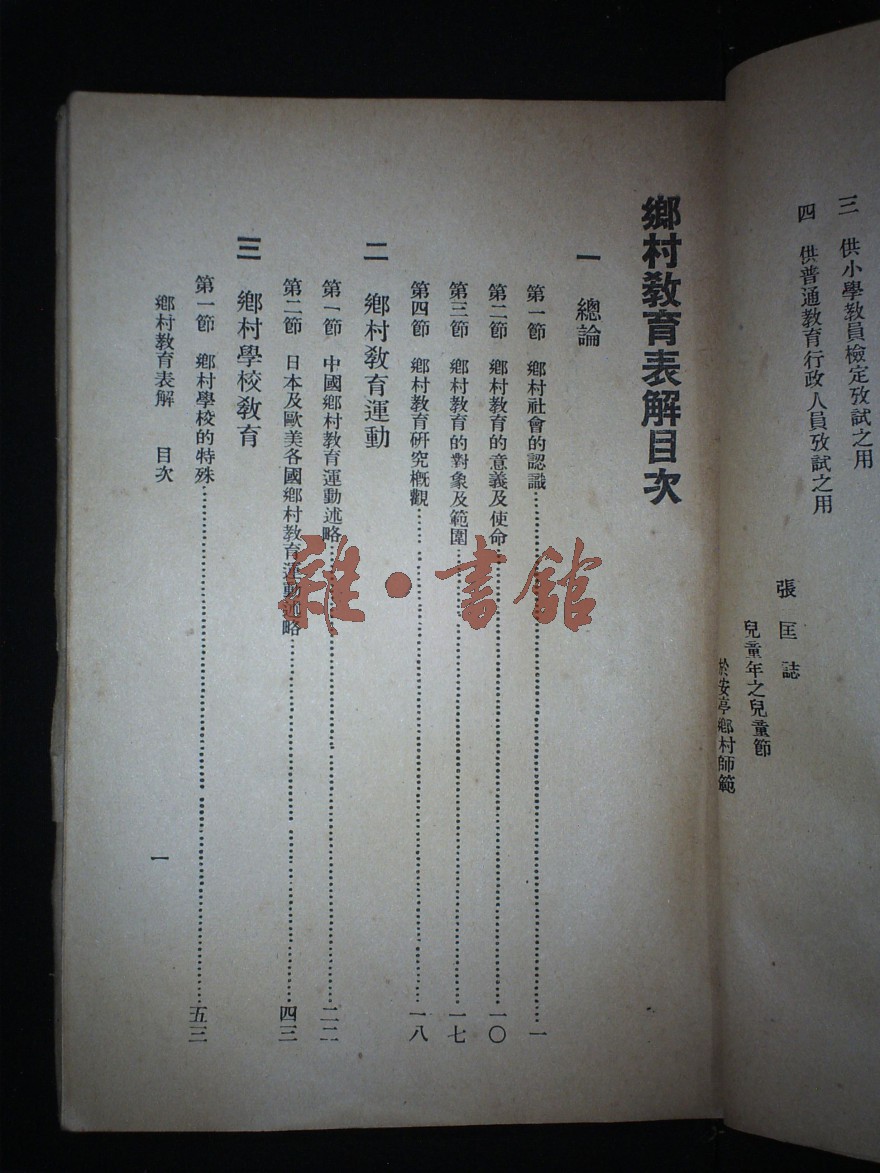 三　供小學教員檢定攷試之用
四　供普通教育行政人員攷試之用
張匡誌
兒童年之兒童節
於安亭鄉村師範
鄉村教育表解目次
一　總論
第一節　鄉村社會的認識…………一
第二節　鄉村教育的意義及使命…………一〇
第三節　鄉村教育的對象及範圍…………一七
第四節　鄉村教育研究概觀…………一八
二　鄉村教育運動
第一節　中國鄉村教育運動述略…………二二
第二節　日本及歐美各國鄉村教育運動述略…………四三
三　鄉村學校教育
第一節　鄉村學校的特殊…………五三
鄉村教育表解　目次
一
雜·書館